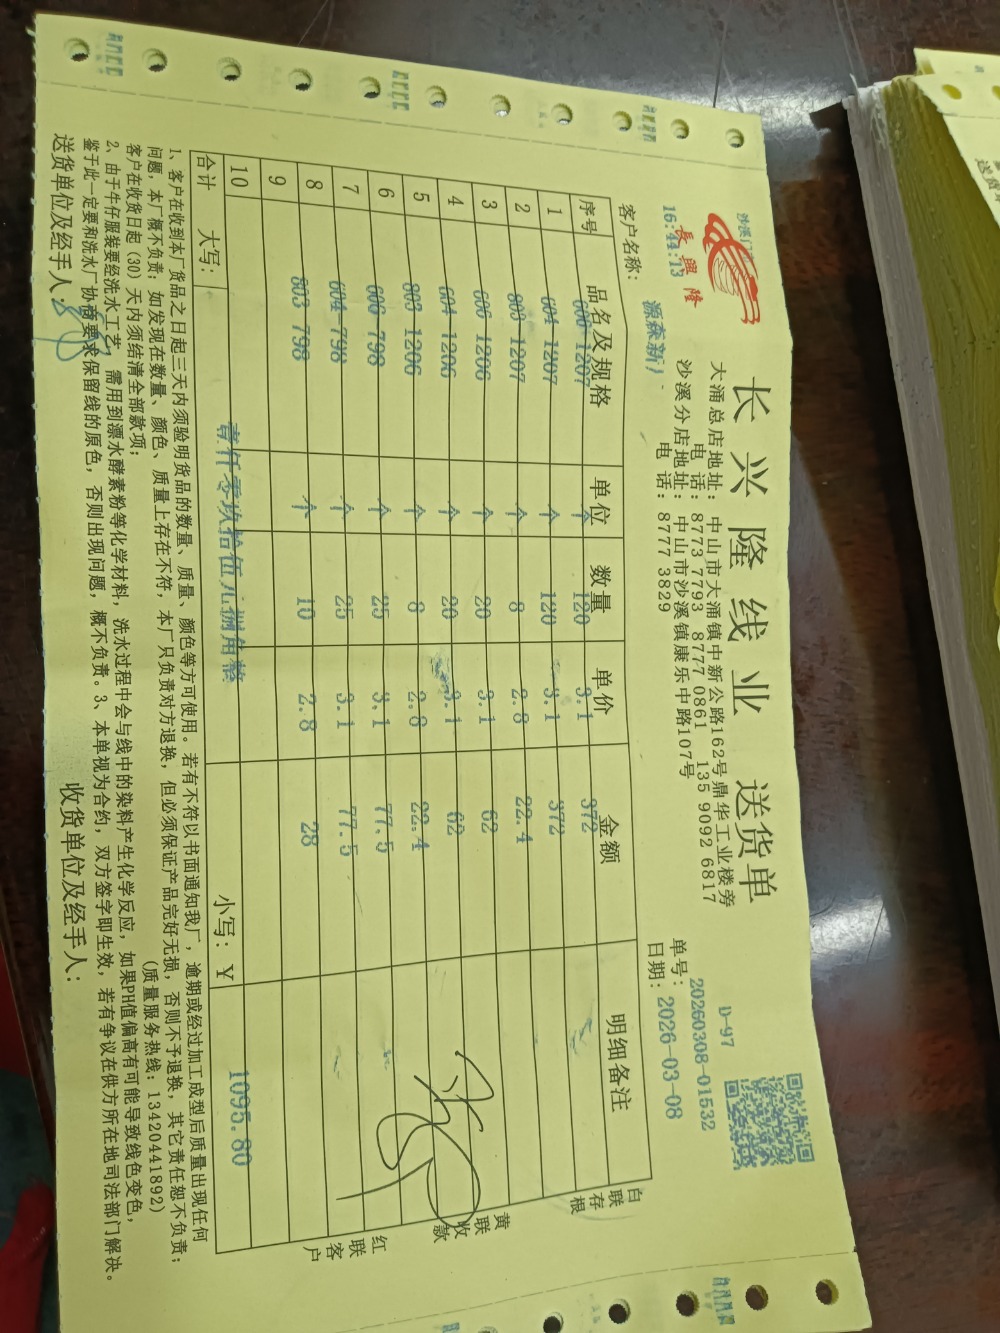 沙溪门市
長興隆
长兴隆线业 送货单
D-97
大涌总店地址：中山市大涌镇中新公路162号鼎华工业楼旁
电 话：8773 7793 8777 0861 135 9092 6817
沙溪分店地址：中山市沙溪镇康乐中路107号
电 话：8777 3829
16:44:13
单号：20260308-01532
客户名称：源森新)
日期：2026-03-08
序号 品名及规格 单位 数量 单价 金额 明细备注
606 1207 个 120 3.1 372
1 604 1207 个 120 3.1 372
2 803 1207 个 8 2.8 22.4
3 606 1206 个 20 3.1 62
4 604 1206 个 20 3.1 62
5 803 1206 个 8 2.8 22.4
6 606 798 个 25 3.1 77.5
7 604 798 个 25 3.1 77.5
8 803 798 个 10 2.8 28
9
10
合计 大写：壹仟零玖拾伍元捌角整 小写：￥ 1095.80
白联存根
黄联收款
红联客户
1、客户在收到本厂货品之日起三天内须验明货品的数量、质量、颜色等方可使用。若有不符以书面通知我厂，逾期或经过加工成型后质量出现任何
问题，本厂概不负责；如发现在数量、颜色、质量上存在不符，本厂只负责对方退换，但必须保证产品完好无损，否则不予退换，其它责任恕不负责；
客户在收货日起(30)天内须结清全部款项； (质量服务热线：13420441892)
2、由于牛仔服装要经洗水工艺，需用到漂水酵素粉等化学材料，洗水过程中会与线中的染料产生化学反应，如果PH值偏高有可能导致线色变色，
鉴于此一定要和洗水厂协商要求保留线的原色，否则出现问题，概不负责。3、本单视为合约，双方签字即生效，若有争议在供方所在地司法部门解决。
送货单位及经手人：
收货单位及经手人：